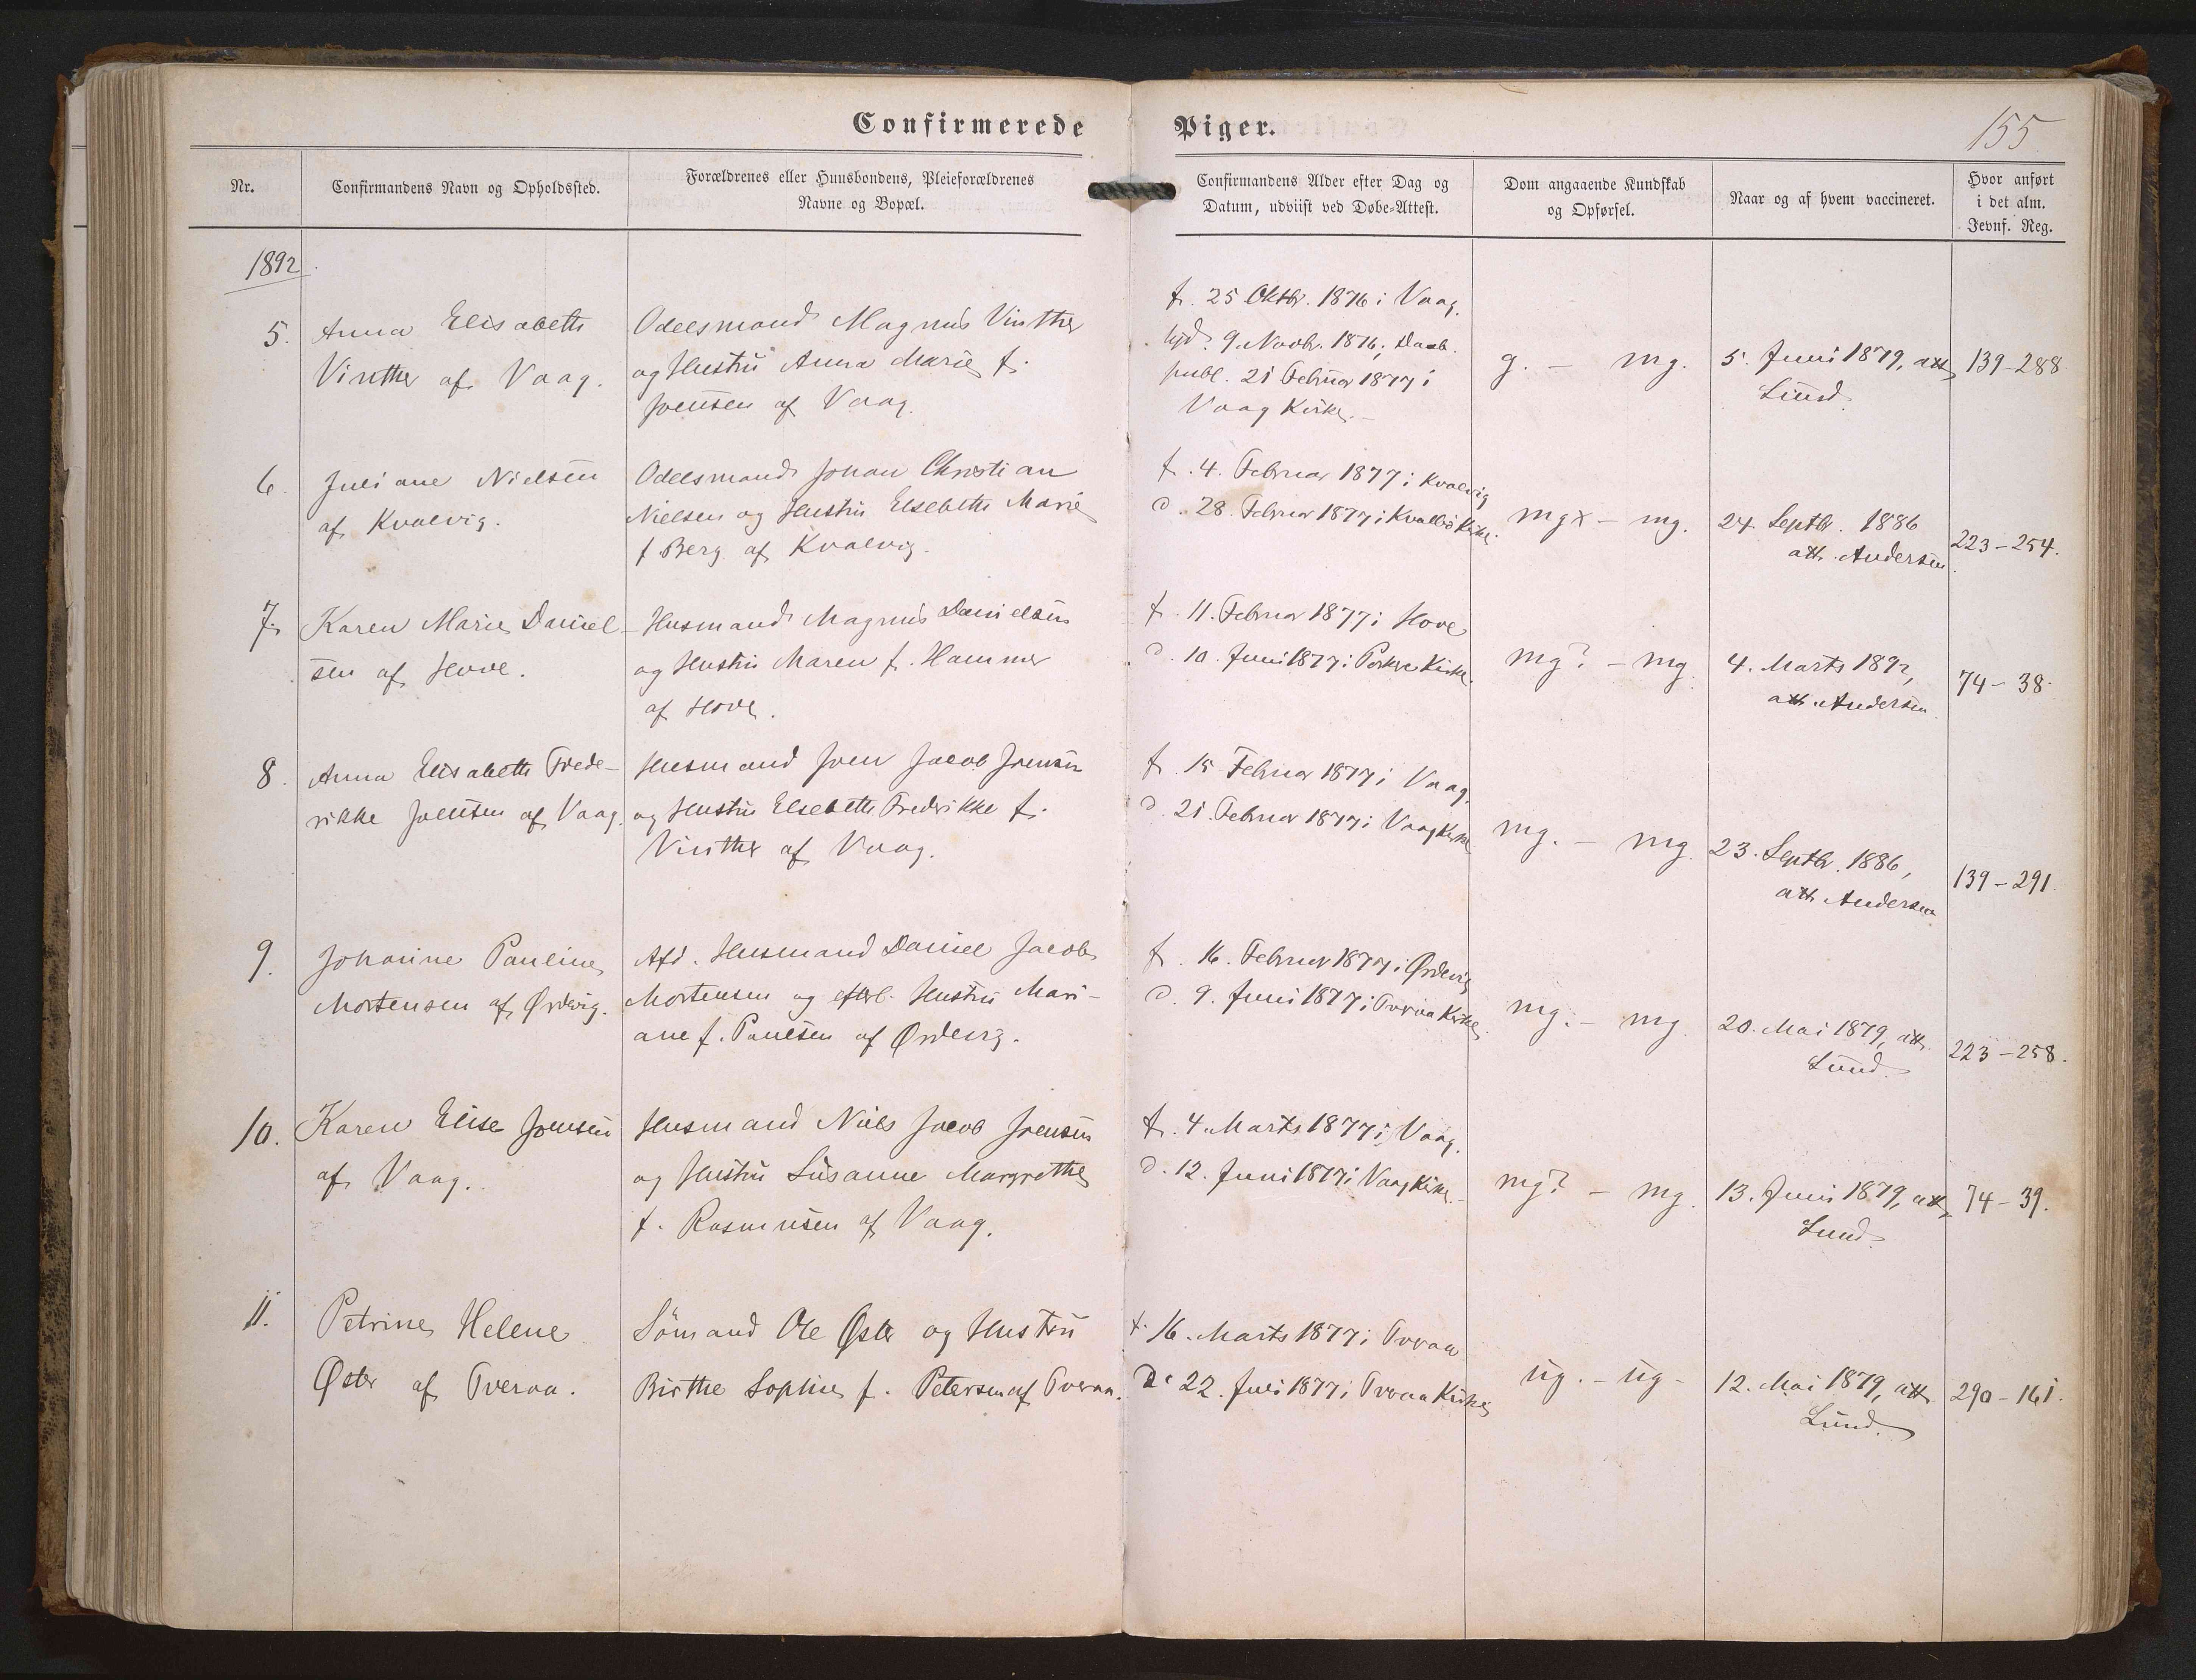 Confirmerede Piger.
155
Nr.
Confirmandens Navn og Opholdssted.
Forældrenes eller Huusbondens, Pleieforældrenes
Navne og Bopæl.
Confirmandens Alder efter Dag og
Datum, udviist ved Døbe-Attest.
Dom angaaende Kundskab
og Opførsel.
Naar og af hvem vaccineret.
Hvor anført
i det alm.
Jevnf. Reg.
1892
5.
Anna Elisabeth
Vinther af Vaag.
Odelsmand Magnus Vinther
og Hustru Anna Marie f.
Joensen af Vaag.
f. 25 Oktbr. 1876 i Vaag.
hjd. 9. Novbr. 1876; Daab.
publ. 21 Februar 1877 i
Vaag Kirke.
g. - mg.
5. Juni 1879, att.
Lund.
139-288
6.
Juliane Nielsen
af Kvalvig.
Odelsmand Johan Christian
Nielsen og Hustru Elsebeth Marie
f. Berg af Kvalvig.
f. 4. Februar 1877 i Kvalvig
d. 28. Februar 1877 i Kvalbø Kirke.
mgx - mg.
24. Septbr. 1886
att. Andersen
223-254.
7.
Karen Marie Daniel-
sen af Hove.
Husmand Magnus Danielsen
og Hustru Maren f. Hammer
af Hove.
f. 11. Februar 1877 i Hove
d. 10. Juni 1877 i Porkere Kirke.
mg? - mg.
4. Marts 1892,
att. Andersen
74-38.
8.
Anna Elisabeth Frede-
rikke Joensen af Vaag.
Husmand Joen Jacob Joensen
og Hustru Elsebeth Frederikke f.
Vinther af Vaag.
f. 15 Februar 1877 i Vaag.
d. 21. Februar 1877 i Vaag Kirke
mg. - mg.
23. Septbr. 1886,
att. Andersen
139-291
9.
Johanne Pauline
Mortensen af Ørdevig.
Afd. Husmand Daniel Jacob
Mortensen og efterl. Hustru Mari-
ane f. Poulsen af Ørdevig.
f. 16. Februar 1877 i Ørdevig
d. 9. Juni 1877 i Tveraa Kirke
mg. - mg.
20. Mai 1879, att.
Lund.
223-258.
10.
Karen Elise Joensen
af Vaag.
Husmand Niels Jacob Joensen
og Hustru Susanne Margrethe
f. Rasmusen af Vaag.
f. 4. Marts 1877 i Vaag.
d. 12. Juni 1877 i Vaag Kirke.
mg? - mg.
13. Juni 1879, att.
Lund.
74-39.
11.
Petrine Helene
Øster af Tveraa.
Sömand Ole Øster og Hustru
Birthe Sophie f. Petersen af Tveraa.
f. 16. Marts 1877 i Tveraa
D. 22. Juli 1877 i Tveraa Kirke
ug. - ug.
12. Mai 1879, att.
Lund.
290-161.